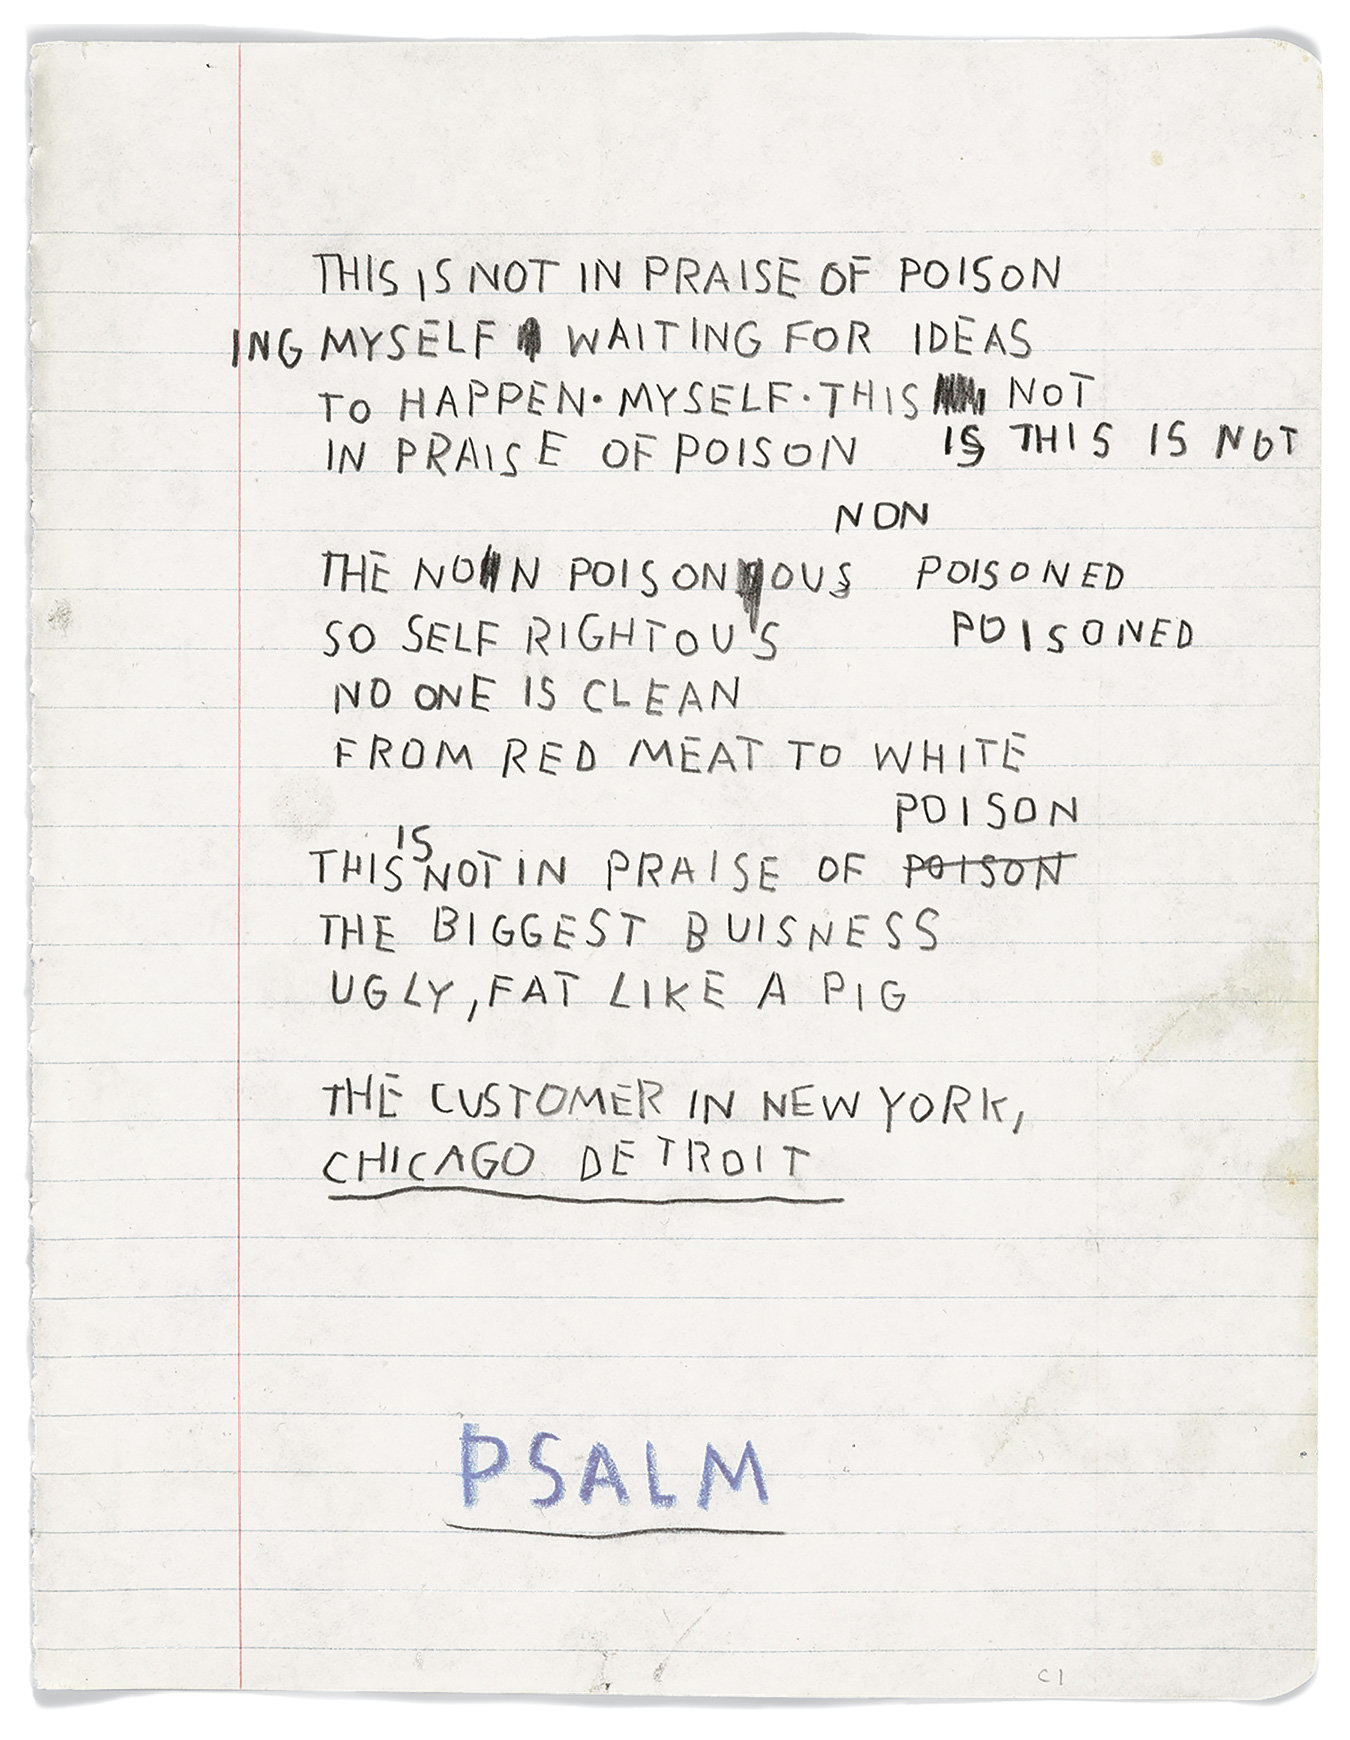 THIS IS NOT IN PRAISE OF POISON
ING MYSELF WAITING FOR IDEAS
TO HAPPEN·MYSELF·THIS NOT
IN PRAISE OF POISON IS THIS IS NOT
NON
THE NON POISONOUS POISONED
SO SELF RIGHTOUS POISONED
NO ONE IS CLEAN
FROM RED MEAT TO WHITE
POISON
THIS IS NOT IN PRAISE OF POISON
THE BIGGEST BUISNESS
UGLY, FAT LIKE A PIG
THE CUSTOMER IN NEW YORK,
CHICAGO DETROIT
PSALM
C1